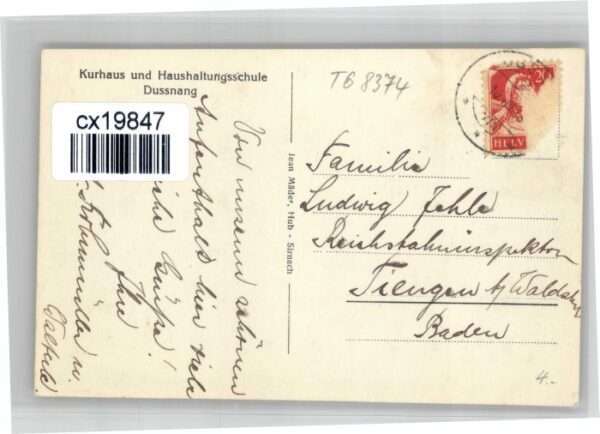 Kurhaus und Haushaltungsschule
Dussnang
cx19847
Von unserm schönen
Aufenthalt hier viele
Grüsse!
Ihr
Jean Mäder, Hub - Sirnach
TG 8374
20
HELV
Familie
Ludwig Jehle
Reichsbahninspektor
Tiengen b/Waldshut
Baden
4.-